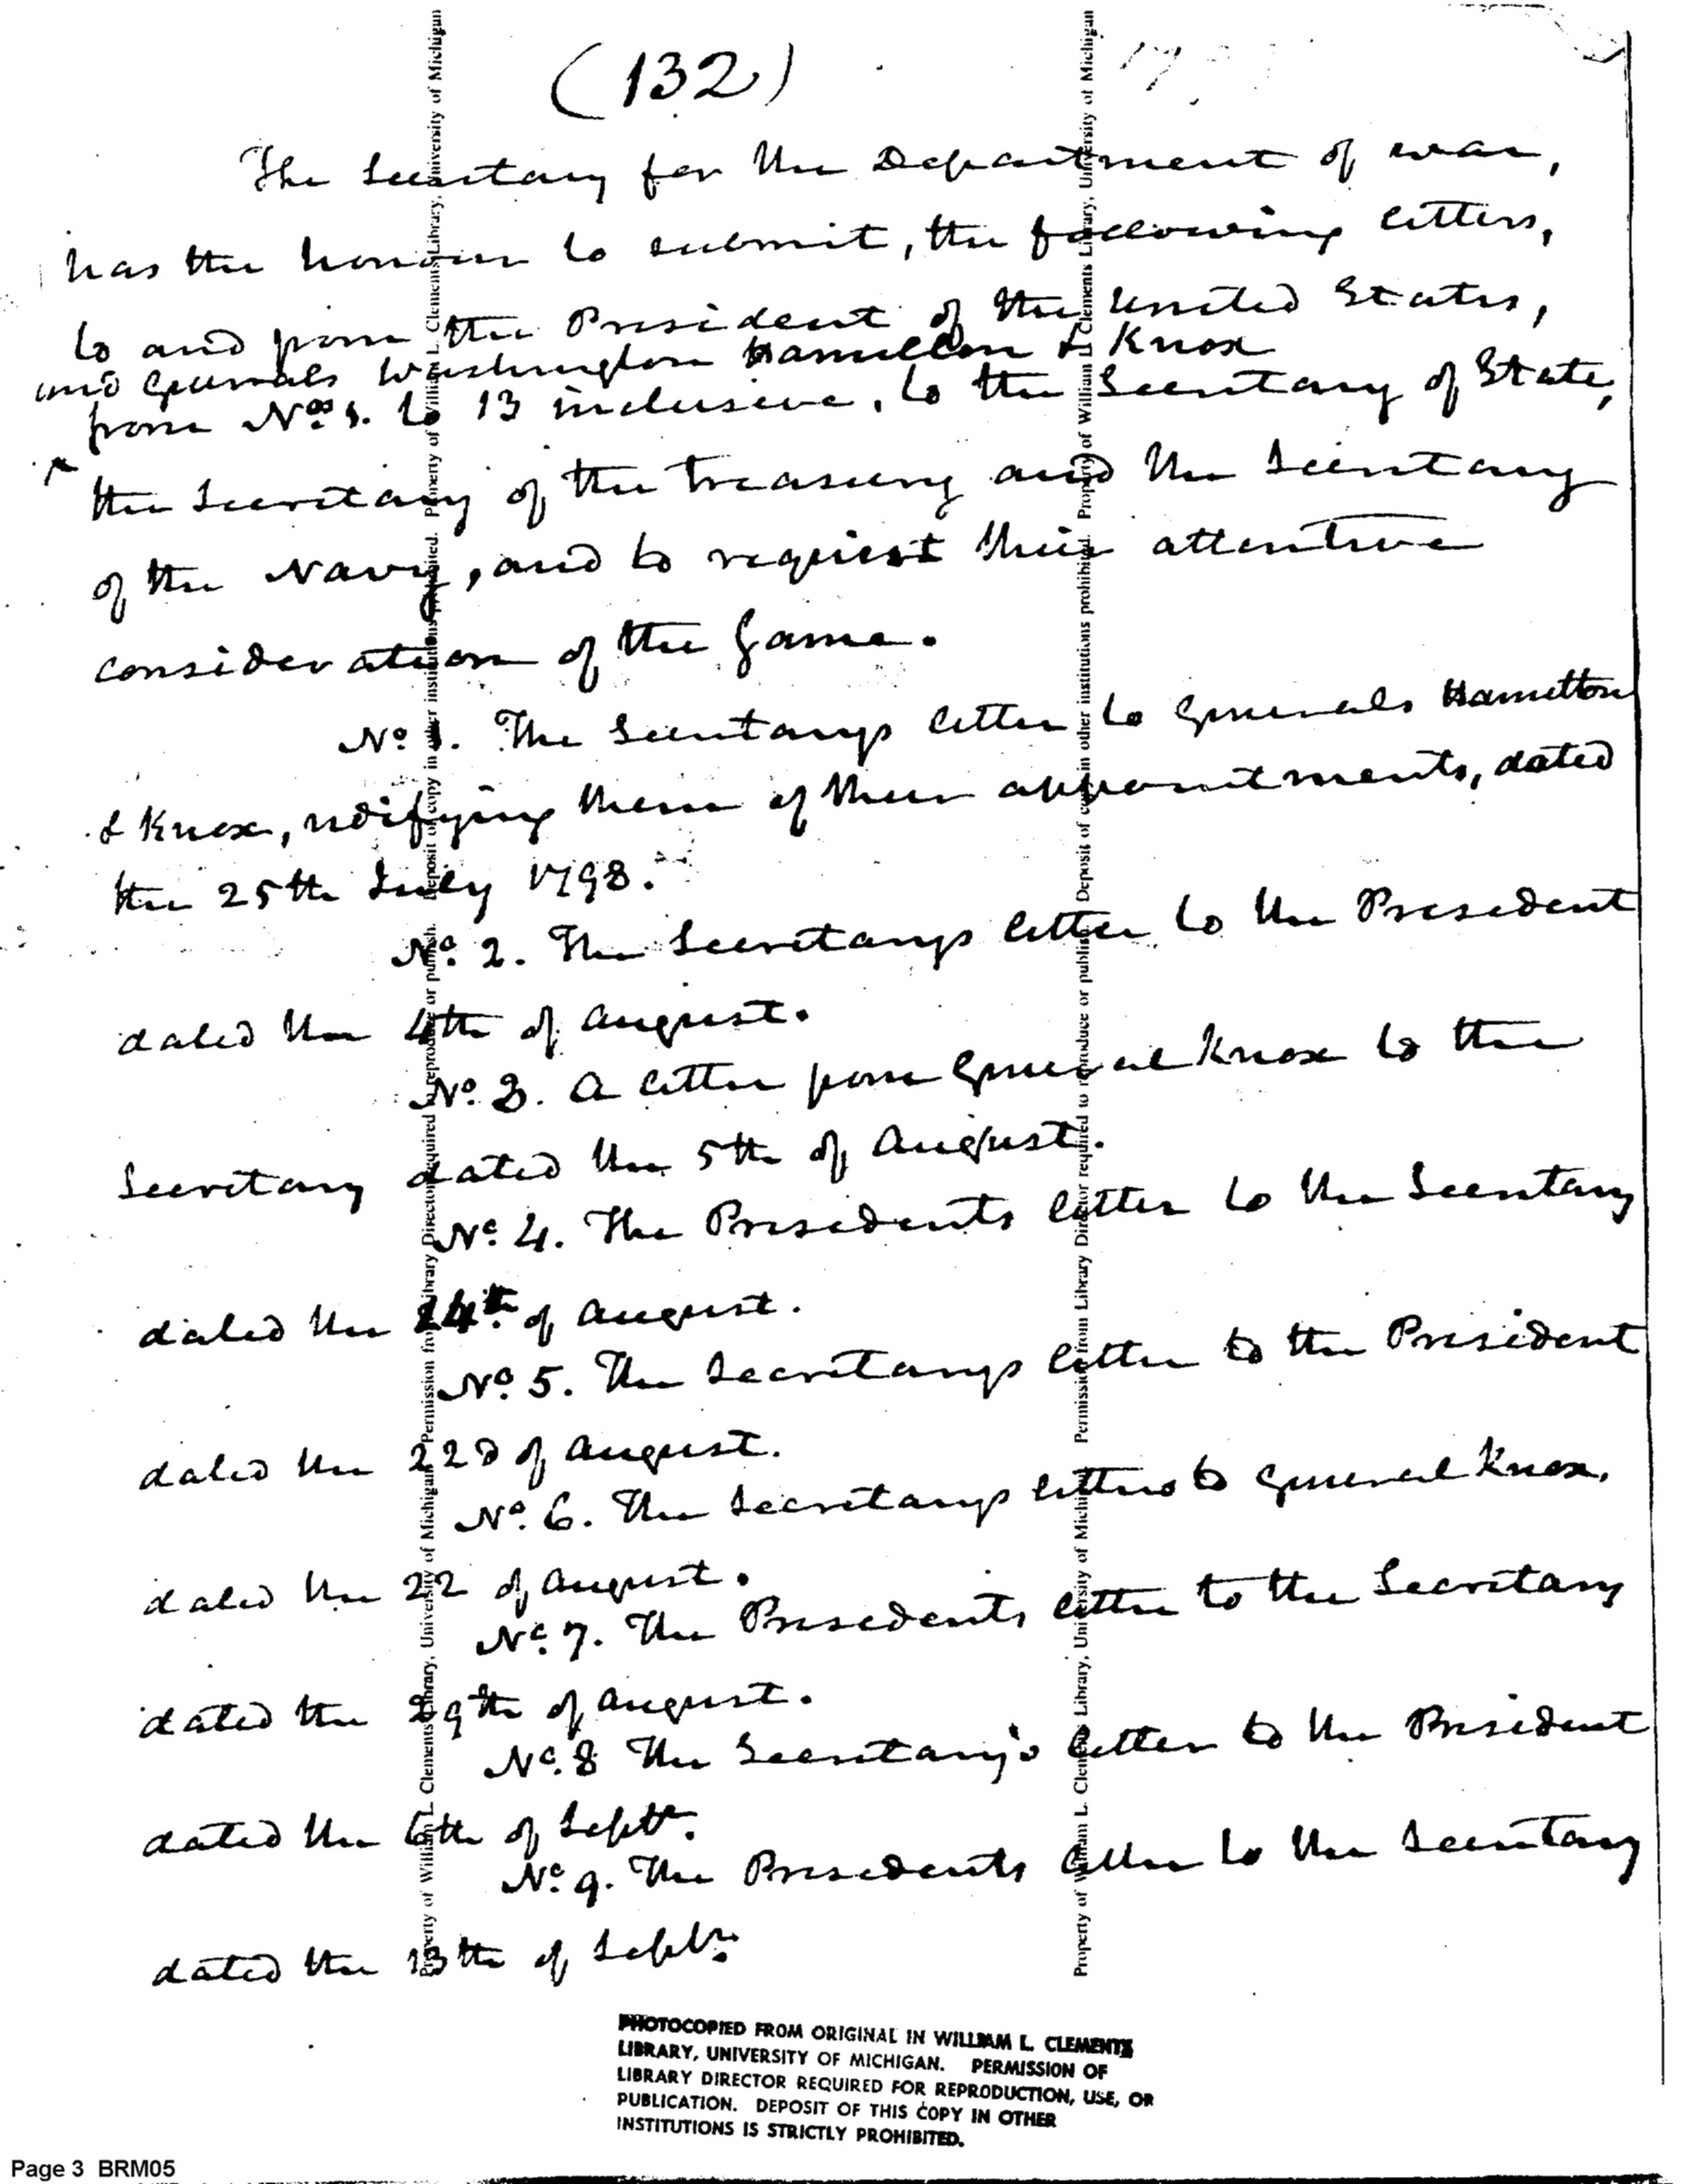 (132)
The Secretary for the Department of war,
has the honour to submit, the following letters,
to and from the President of the United States,
and Generals Washington Hamilton & Knox
from Nos. 1. to 13 inclusive, to the Secretary of State,
the Secretary of the Treasury and the Secretary
of the Navy, and to request their attentive
consideration of the Same.
No. 1. The Secretarys letter to Generals Hamilton
& Knox, notifying them of their appointments, dated
the 25th July 1798.
No. 2. The Secretarys letter to the President
dated the 4th of August.
No. 3. A letter from General Knox to the
Secretary dated the 5th of August.
No. 4. The Presidents letter to the Secretary
dated the 14th. of August.
No. 5. The Secretarys letter to the President
dated the 22d of August.
No. 6. The Secretarys letters to General Knox,
dated the 22 of August.
No. 7. The Presidents letter to the Secretary
dated the 29th of August.
No. 8 The Secretary's letter to the President
dated the 6th of Septr.
No. 9. The Presidents letter to the Secretary
dated the 13th of Septr.
PHOTOCOPIED FROM ORIGINAL IN WILLIAM L. CLEMENTS
LIBRARY, UNIVERSITY OF MICHIGAN. PERMISSION OF
LIBRARY DIRECTOR REQUIRED FOR REPRODUCTION, USE, OR
PUBLICATION. DEPOSIT OF THIS COPY IN OTHER
INSTITUTIONS IS STRICTLY PROHIBITED.
Page 3 BRM05
Property of William L. Clements Library, University of Michigan. Permission from Library Director required to reproduce or publish. Deposit of copy in other institutions prohibited. Property of William L. Clements Library, University of Michigan
Property of William L. Clements Library, University of Michigan. Permission from Library Director required to reproduce or publish. Deposit of copy in other institutions prohibited. Property of William L. Clements Library, University of Michigan